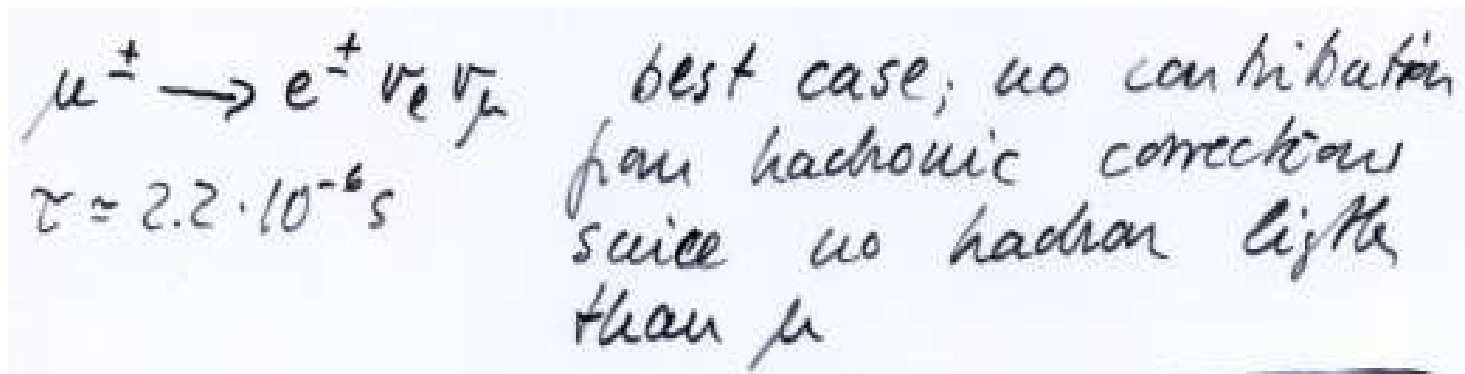 μ± → e± νe νμ best case; no contribution
from hadronic corrections
τ ≃ 2.2 · 10⁻⁶ s
since no hadron ligther
than μ